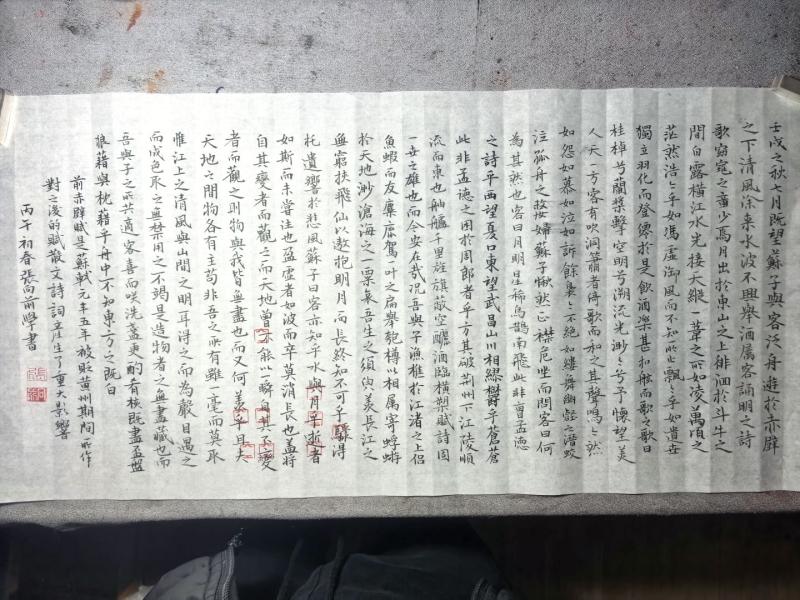 壬戌之秋七月既望蘇子與客泛舟遊於赤壁
之下清風徐來水波不興舉酒属客誦明之詩
歌窈窕之章少焉月出於東山之上徘徊於斗牛之
間白露橫江水光接天縱一葦之所如凌萬頃之
茫然浩浩乎如馮虛御風而不知所止飄飄乎如遺世
獨立羽化而登僊於是飲酒樂甚扣舷而歌之歌曰
桂棹兮蘭槳擊空明兮溯流光渺渺兮予懷望美
人天一方客有吹洞簫者倚歌而和之其聲嗚嗚然
如怨如慕如泣如訴餘裊裊不絕如縷舞幽壑之潛蛟
泣孤舟之嫠婦蘇子愀然正襟危坐而問客曰何
為其然也客曰月明星稀烏鵲南飛此非曹孟德
之詩乎西望夏口東望武昌山川相繆鬱乎蒼蒼
此非孟德之困於周郎者乎方其破荊州下江陵順
流而東也舳艫千里旌旗蔽空釃酒臨江橫槊賦詩固
一世之雄也而今安在哉況吾與子漁樵於江渚之上侶
魚蝦而友麋鹿駕一葉之扁舟舉匏樽以相属寄蜉蝣
於天地渺滄海之一粟哀吾生之須臾羨長江之
無窮挾飛仙以遨抱明月而長終知不可乎驟得
托遺響於悲風蘇子曰客亦知乎水與月乎逝者
如斯而未嘗往也盈虛者如波而卒莫消長也蓋將
自其變者而觀之而天地曾不能以一瞬自其不變
者而觀之則物與我皆無盡也而又何羨乎且夫
天地之間物各有主苟非吾之所有雖一毫而莫取
惟江上之清風與山間之明耳得之而為聲目遇之
而成色取之無禁用之不竭是造物者之無盡藏也而
吾與子之所共適客喜而笑洗盞更酌肴核既盡盃盤
狼藉與枕藉乎舟中不知東方之既白
前赤辟賦是蘇軾元丰五年被貶黄州期间所作
對之後的賦散文詩詞產生了重大影響
丙午初春張向前學書